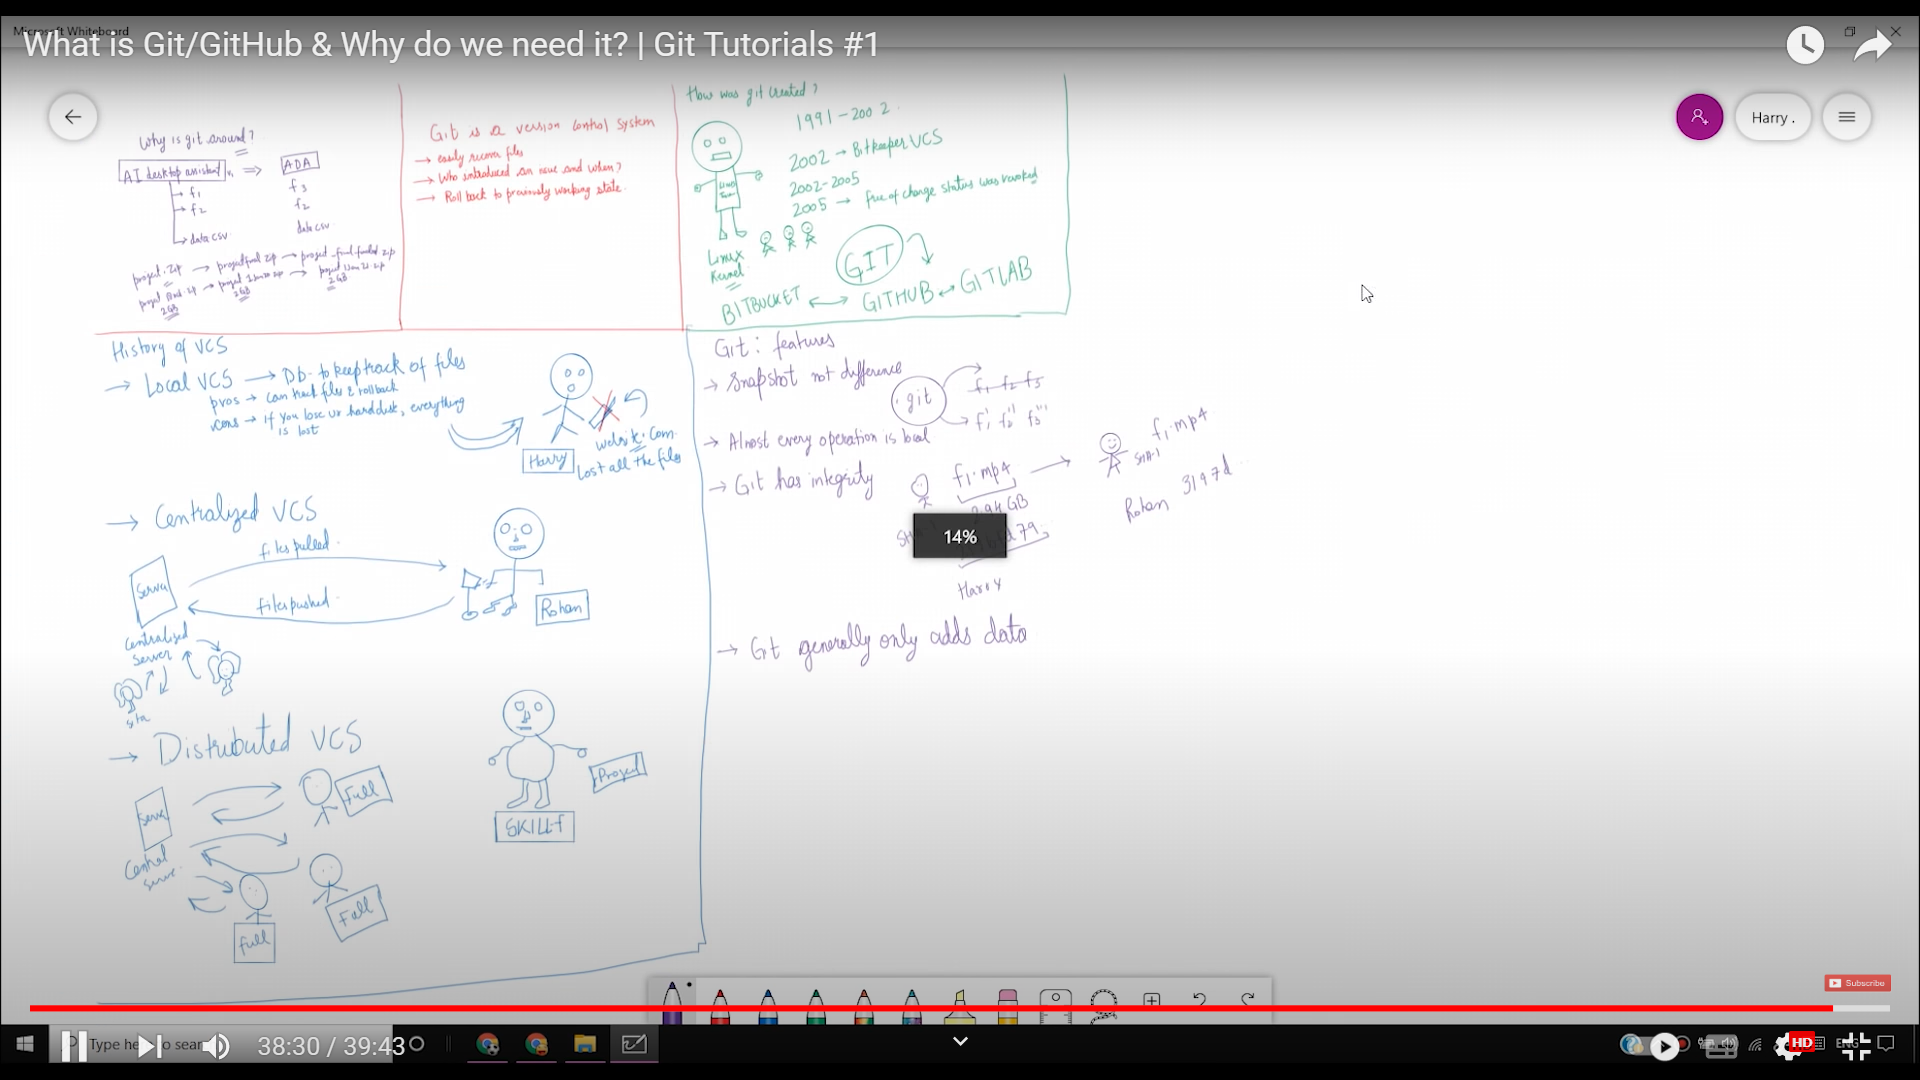 Microsoft Whiteboard
What is Git/GitHub & Why do we need it? | Git Tutorials #1
Harry .
Why is git around?
AI desktop assistant v1 => ADA
f1
f2
data csv
f3
f2
data csv
project.zip
2GB
2GB
2GB
Git is a version control system
→ easily recover files
→ Who introduced an issue and when?
→ Roll back to previously working state.
How was git created?
1991-2002
2002 → Bitkeeper VCS
2002-2005
2005 → free of charge status was revoked
Linux
Kernel
GIT
BITBUCKET ↔ GITHUB ↔ GITLAB
History of VCS
→ Local VCS → Db- to keep track of files
pros → can track files & rollback
cons → if you lose ur hard disk, everything
is lost
Harry
website.com
Lost all the files
→ Centralized VCS
files pulled
files pushed
Server
Centralised
Server
Rohan
→ Distributed VCS
Server
Central
Full
Full
Full
Project
SKILLF
Git: features
→ Snapshot not difference
git
f1 f2 f3
f1' f2'' f3'''
→ Almost every operation is local
→ Git has integrity
f1.mp4 →
f1.mp4
SHA-1
GB
79
Harry
Rohan 3197d
→ Git generally only adds data
14%
Subscribe
38:30 / 39:43
Type here to sear
HD
ENG